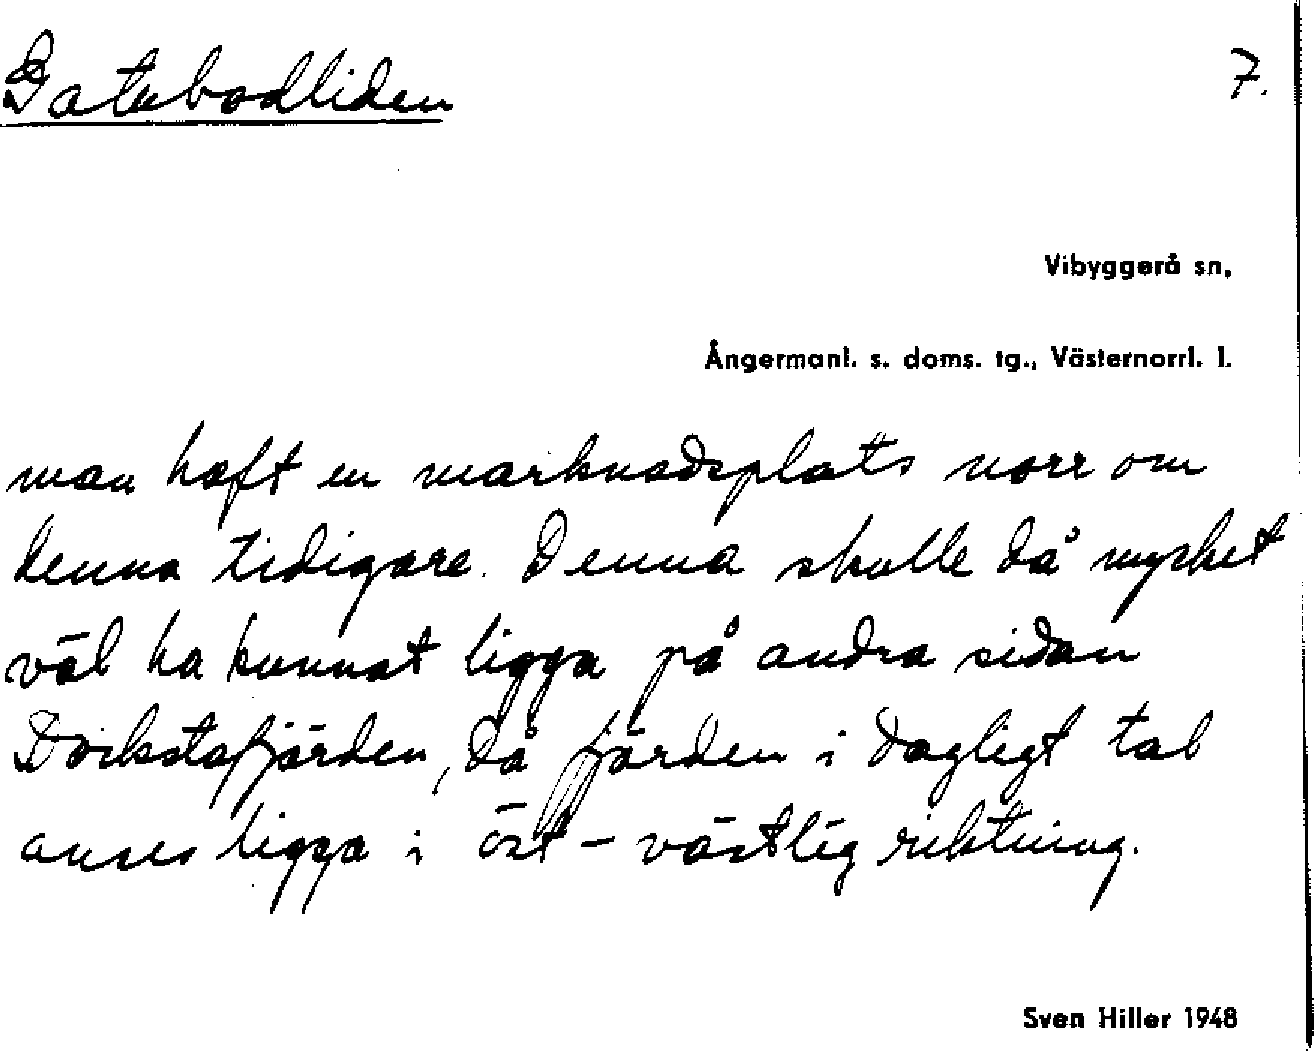 Gatubodliden
7.
Vibyggerå sn,
Ångermanl. s. doms. tg., Västernorrl. l.
man haft en marknadsplats norr om
denna tidigare. Denna skulle då mycket
väl ha kunnat ligga på andra sidan
Dockstafjärden, då fjärden i dagligt tal
anses ligga i öst - västlig riktning.
Sven Hiller 1948